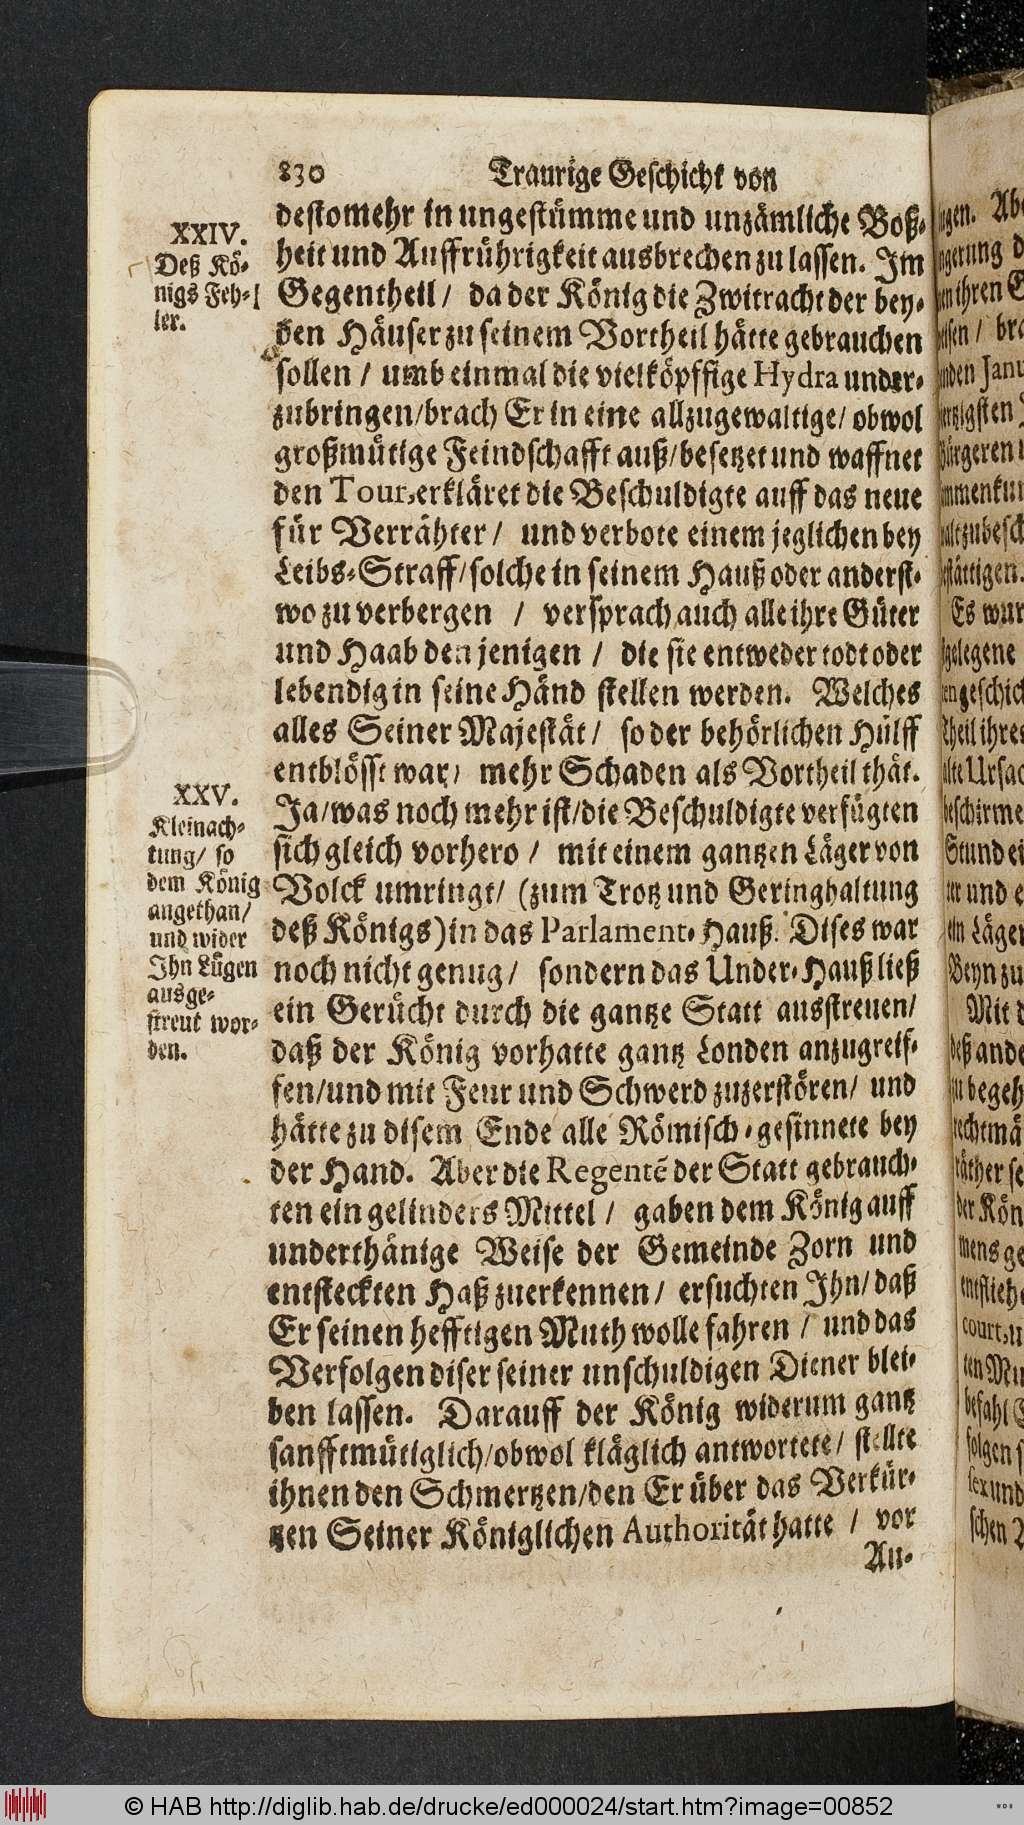 830 Traurige Geschicht von
destomehr in ungestümme und unzämliche Boß-
heit und Auffrührigkeit ausbrechen zu lassen. Im
Gegentheil / da der König die Zwitracht der bey-
den Häuser zu seinem Vortheil hätte gebrauchen
sollen / umb einmal die vielköpffige Hydra under-
zubringen/brach Er in eine allzugewaltige/ obwol
großmütige Feindschafft auß/besetzet und waffnet
den Tour, erkläret die Beschuldigte auff das neue
für Verrähter / und verbote einem jeglichen bey
Leibs-Straff/solche in seinem Hauß oder anderst-
wo zu verbergen / versprach auch alle ihre Güter
und Haab den jenigen / die sie entweder todt oder
lebendig in seine Händ stellen werden. Welches
alles Seiner Majestät / so der behörlichen Hülff
entblösst war, mehr Schaden als Vortheil thät.
Ja/was noch mehr ist/die Beschuldigte verfügten
sich gleich vorhero / mit einem gantzen Läger von
Volck umringt/ (zum Trotz und Geringhaltung
deß Königs) in das Parlament-Hauß. Dises war
noch nicht genug / sondern das Under-Hauß ließ
ein Gerücht durch die gantze Statt ausstreuen/
daß der König vorhatte gantz Londen anzugreif-
fen/und mit Feur und Schwerd zuzerstören/ und
hätte zu disem Ende alle Römisch-gesinnete bey
der Hand. Aber die Regentẽ der Statt gebrauch-
ten ein gelinders Mittel / gaben dem König auff
underthänige Weise der Gemeinde Zorn und
entsteckten Haß zuerkennen / ersuchten Ihn/daß
Er seinen hefftigen Muth wolle fahren / und das
Verfolgen diser seiner unschuldigen Diener blei-
ben lassen. Darauff der König widerum gantz
sanfftmütiglich/obwol kläglich antwortete/ stellte
ihnen den Schmertzen/den Er über das Verkür-
tzen Seiner Königlichen Authorität hatte / vor
An-
XXIV.
Deß Kö-
nigs Feh-
ler.
XXV.
Kleinach-
tung/ so
dem König
angethan/
und wider
Ihn Lügen
ausge-
streut wor-
den.
© HAB http://diglib.hab.de/drucke/ed000024/start.htm?image=00852